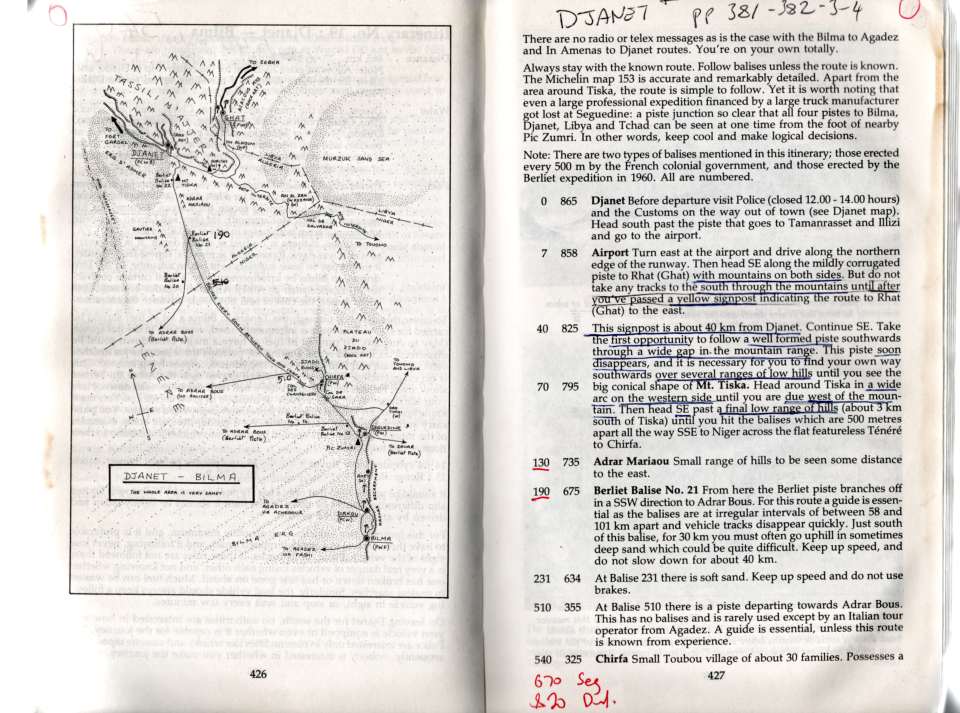 TO SEBHA
TASSILI
N'AJJER
GHAT
TO FORT-GARDEL
DJANET
ERG D'
ADMER
MURZUK SAND SEA
LIBYA
ALGERIA
Berliet
Balise
No. 22
TISKA
ADRAR
MARIAOU
IN EZZANE
LIBYA
NIGER
COL DE
SALVADOR
TO TOUMMO
GAUTIER
MOUNTAINS
Berliet
Balise
No. 21
190
ALGERIA
NIGER
Berliet
Balise
No. 20
510
BALISES EVERY 500M
TO ADRAR BOUS
(Berliet Piste)
TÉNÉRÉ
PLATEAU
DU
DJADO
(ROCK ART)
DJADO
CHIRFA
TO
TOUMMO
AND LIBYA
TO ADRAR BOUS
(NO BALISES)
510
COL DE
YABA
Berliet Balise
TO ADRAR BOUS
(Berliet Piste)
Berliet
SEGUEDINE
PIC ZUMRI
(Berliet Piste)
N
S
DJANET - BILMA
THE WHOLE AREA IS VERY SANDY
TO
AGADEZ
VIA ACHEGOUR
DIRKOU
BILMA ERG
TO AGADEZ
VIA FACHI
BILMA
426
DJANET pp 381-382-3-4
There are no radio or telex messages as is the case with the Bilma to Agadez
and In Amenas to Djanet routes. You're on your own totally.
Always stay with the known route. Follow balises unless the route is known.
The Michelin map 153 is accurate and remarkably detailed. Apart from the
area around Tiska, the route is simple to follow. Yet it is worth noting that
even a large professional expedition financed by a large truck manufacturer
got lost at Seguedine: a piste junction so clear that all four pistes to Bilma,
Djanet, Libya and Tchad can be seen at one time from the foot of nearby
Pic Zumri. In other words, keep cool and make logical decisions.
Note: There are two types of balises mentioned in this itinerary; those erected
every 500 m by the French colonial government, and those erected by the
Berliet expedition in 1960. All are numbered.
0 865 Djanet Before departure visit Police (closed 12.00 - 14.00 hours)
and the Customs on the way out of town (see Djanet map).
Head south past the piste that goes to Tamanrasset and Illizi
and go to the airport.
7 858 Airport Turn east at the airport and drive along the northern
edge of the runway. Then head SE along the mildly corrugated
piste to Rhat (Ghat) with mountains on both sides. But do not
take any tracks to the south through the mountains until after
you've passed a yellow signpost indicating the route to Rhat
(Ghat) to the east.
40 825 This signpost is about 40 km from Djanet. Continue SE. Take
the first opportunity to follow a well formed piste southwards
through a wide gap in the mountain range. This piste soon
disappears, and it is necessary for you to find your own way
southwards over several ranges of low hills until you see the
70 795 big conical shape of Mt. Tiska. Head around Tiska in a wide
arc on the western side until you are due west of the moun-
tain. Then head SE past a final low range of hills (about 3 km
south of Tiska) until you hit the balises which are 500 metres
apart all the way SSE to Niger across the flat featureless Ténéré
to Chirfa.
130 735 Adrar Mariaou Small range of hills to be seen some distance
to the east.
190 675 Berliet Balise No. 21 From here the Berliet piste branches off
in a SSW direction to Adrar Bous. For this route a guide is essen-
tial as the balises are at irregular intervals of between 58 and
101 km apart and vehicle tracks disappear quickly. Just south
of this balise, for 30 km you must often go uphill in sometimes
deep sand which could be quite difficult. Keep up speed, and
do not slow down for about 40 km.
231 634 At Balise 231 there is soft sand. Keep up speed and do not use
brakes.
510 355 At Balise 510 there is a piste departing towards Adrar Bous.
This has no balises and is rarely used except by an Italian tour
operator from Agadez. A guide is essential, unless this route
is known from experience.
540 325 Chirfa Small Toubou village of about 30 families. Possesses a
427
670 Seg
820 Dir.